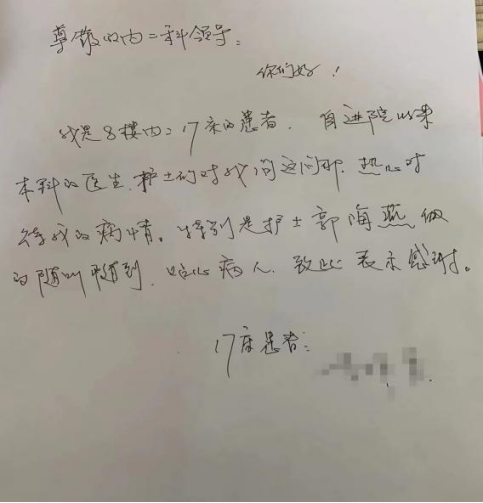 尊敬的内二科领导：
你们好！
我是8楼内二17床的患者，自进院以来
本科的医生、护士们对我问这问那，热心对
待我的病情。特别是护士郭海燕做
的随叫随到，关心病人，致此表示感谢。
17床患者：